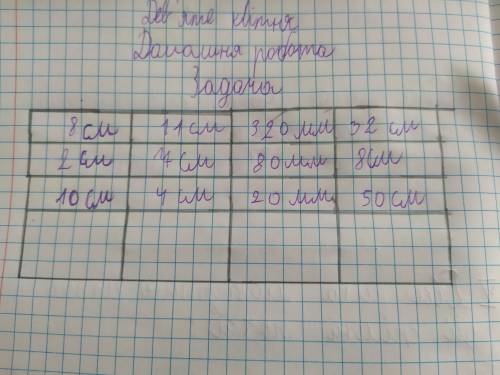 Дев'яте квітня
Домашня робота
Задача
8 см 11 см 320 мм 32 см
2 см 7 см 80 мм 8 см
10 см 4 см 20 мм 50 см